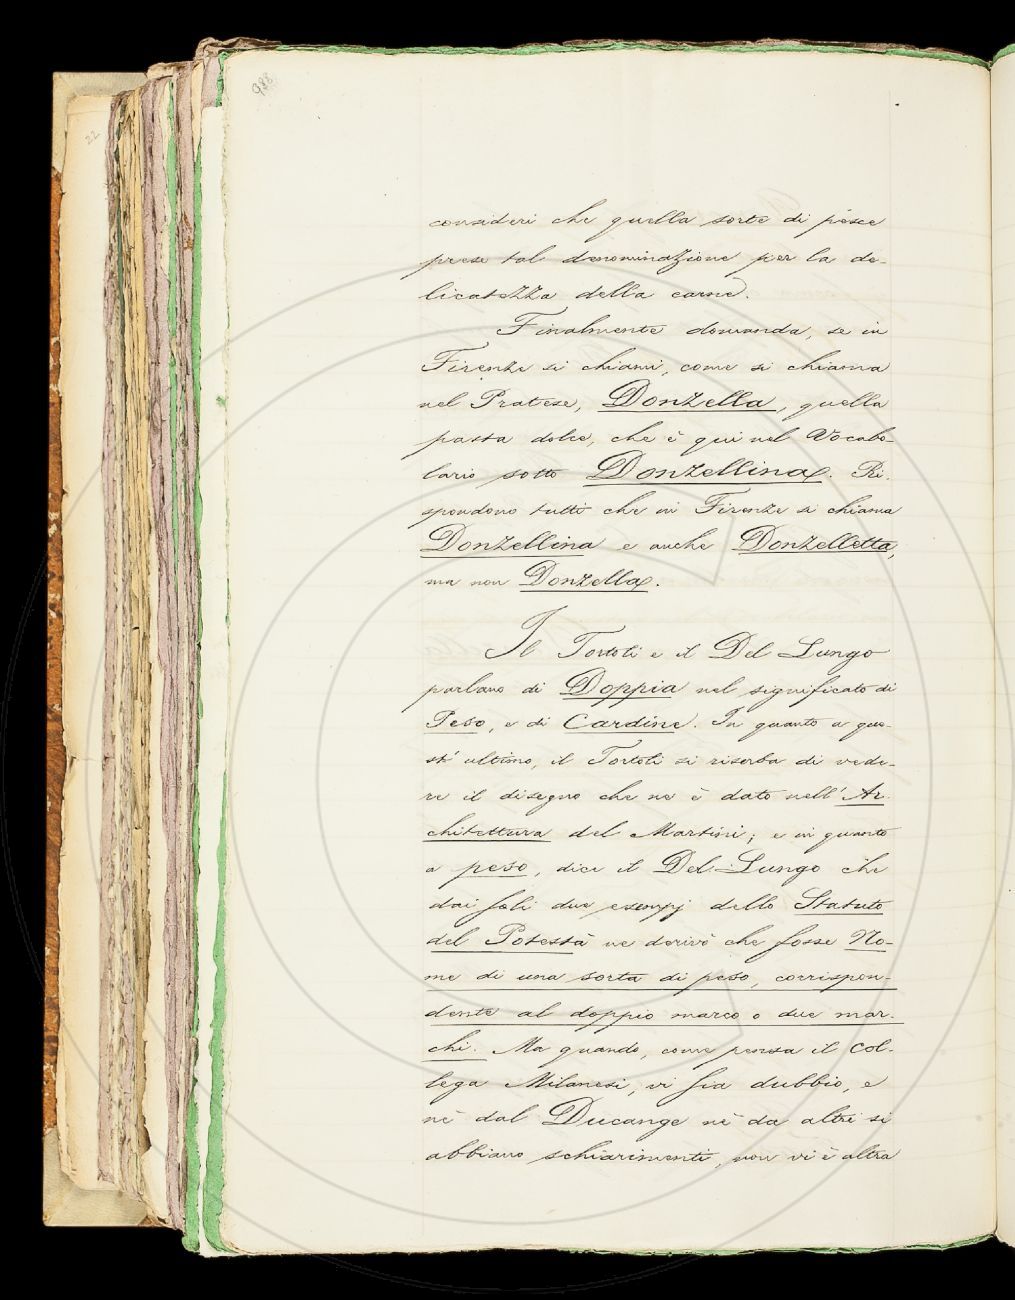 988
22
consideri che quella sorte di pésce
prese tal denominazione per la de-
licatezza della carne.
Finalmente domanda, se in
Firenze si chiami, come si chiama
nel Pratese, Donzella, quella
pasta dolce, che è qui nel Vocabo-
lario sotto Donzellina. Ri-
spondono tutti che in Firenze si chiama
Donzellina e anche Donzelletta,
ma non Donzella.
Il Tortoli e il Del Lungo
parlano di Doppia nel significato di
Peso, e di Cardine. In quanto a que-
st' ultimo, il Tortoli si riserba di vede-
re il disegno che ne è dato nell' Ar-
chitettura del Martini; e in quanto
a peso, dice il Del-Lungo che
dai soli due esempj dello Statuto
del Potestà ne derivò che fosse No-
me di una sorta di peso, corrispon-
dente al doppio marco o due mar-
chi. Ma quando, come pensa il Col-
lega Milanesi, vi sia dubbio, e
nè dal Ducange nè da altri si
abbiano schiarimenti, non vi è altra